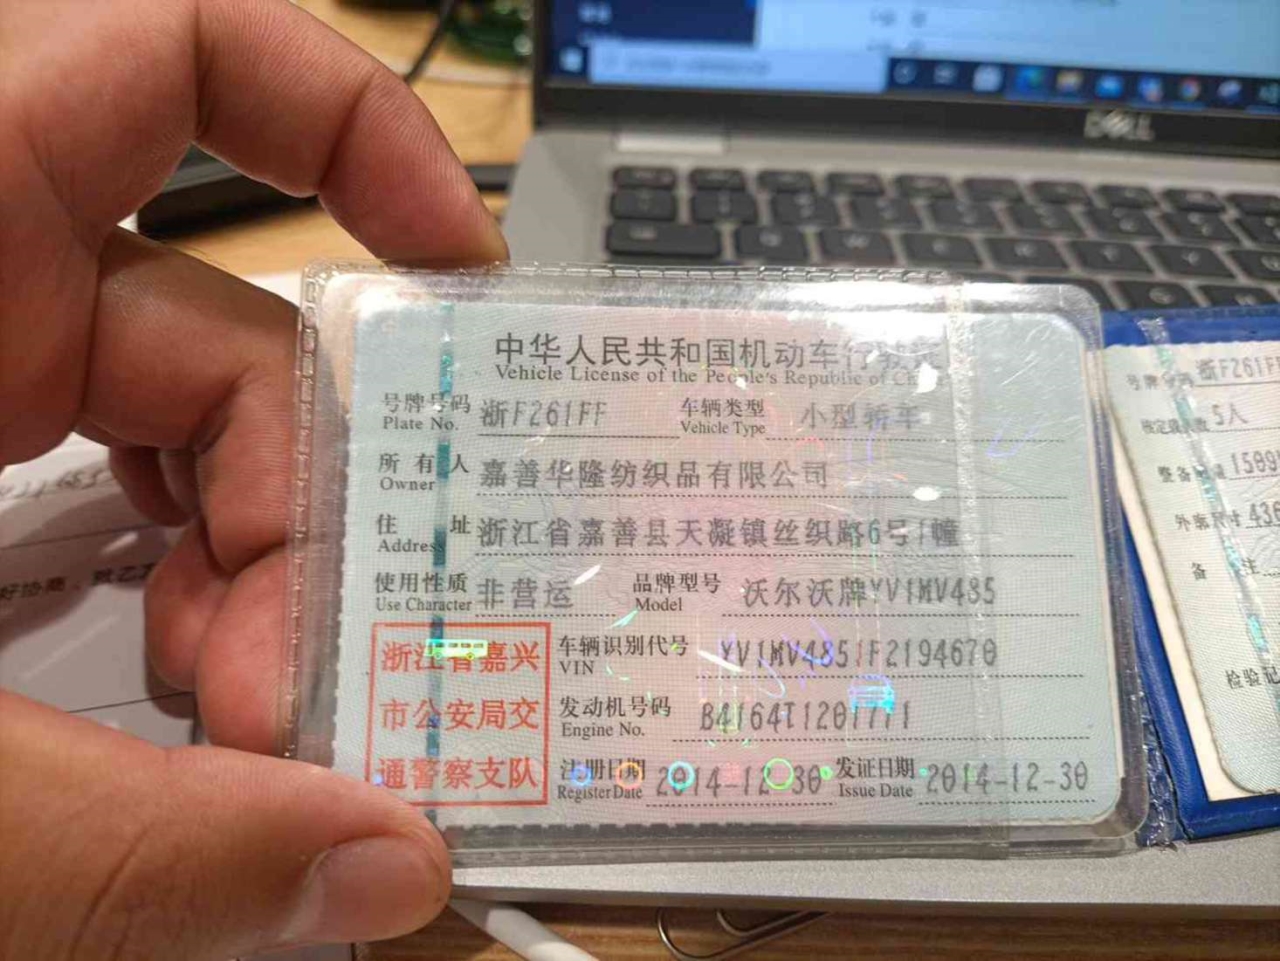 DELL
中华人民共和国机动车行驶证
Vehicle License of the People's Republic of China
号牌号码 浙F261FF 车辆类型 小型轿车
Plate No. Vehicle Type
所有人 嘉善华隆纺织品有限公司
Owner
住址 浙江省嘉善县天凝镇丝织路6号1幢
Address
使用性质 非营运 品牌型号 沃尔沃牌YV1MV485
Use Character Model
浙江省嘉兴
市公安局交
通警察支队
车辆识别代号 YV1MV4851F2194670
VIN
发动机号码 B4164T1201771
Engine No.
注册日期 2014-12-30 发证日期 2014-12-30
Register Date Issue Date
号牌号码 浙F261FF
核定载人数 5人
整备质量 1509
外廓尺寸 436
备 注
检验记
好协商